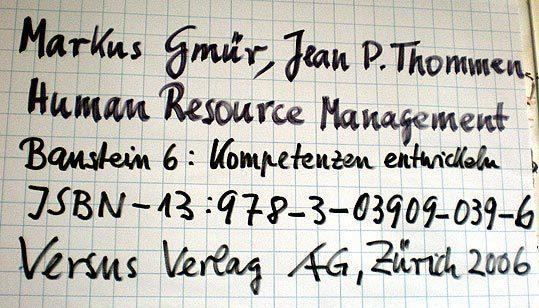 Markus Gmür, Jean P. Thommen
Human Resource Management
Baustein 6: Kompetenzen entwickeln
ISBN-13:978-3-03909-039-6
Versus Verlag AG, Zürich 2006